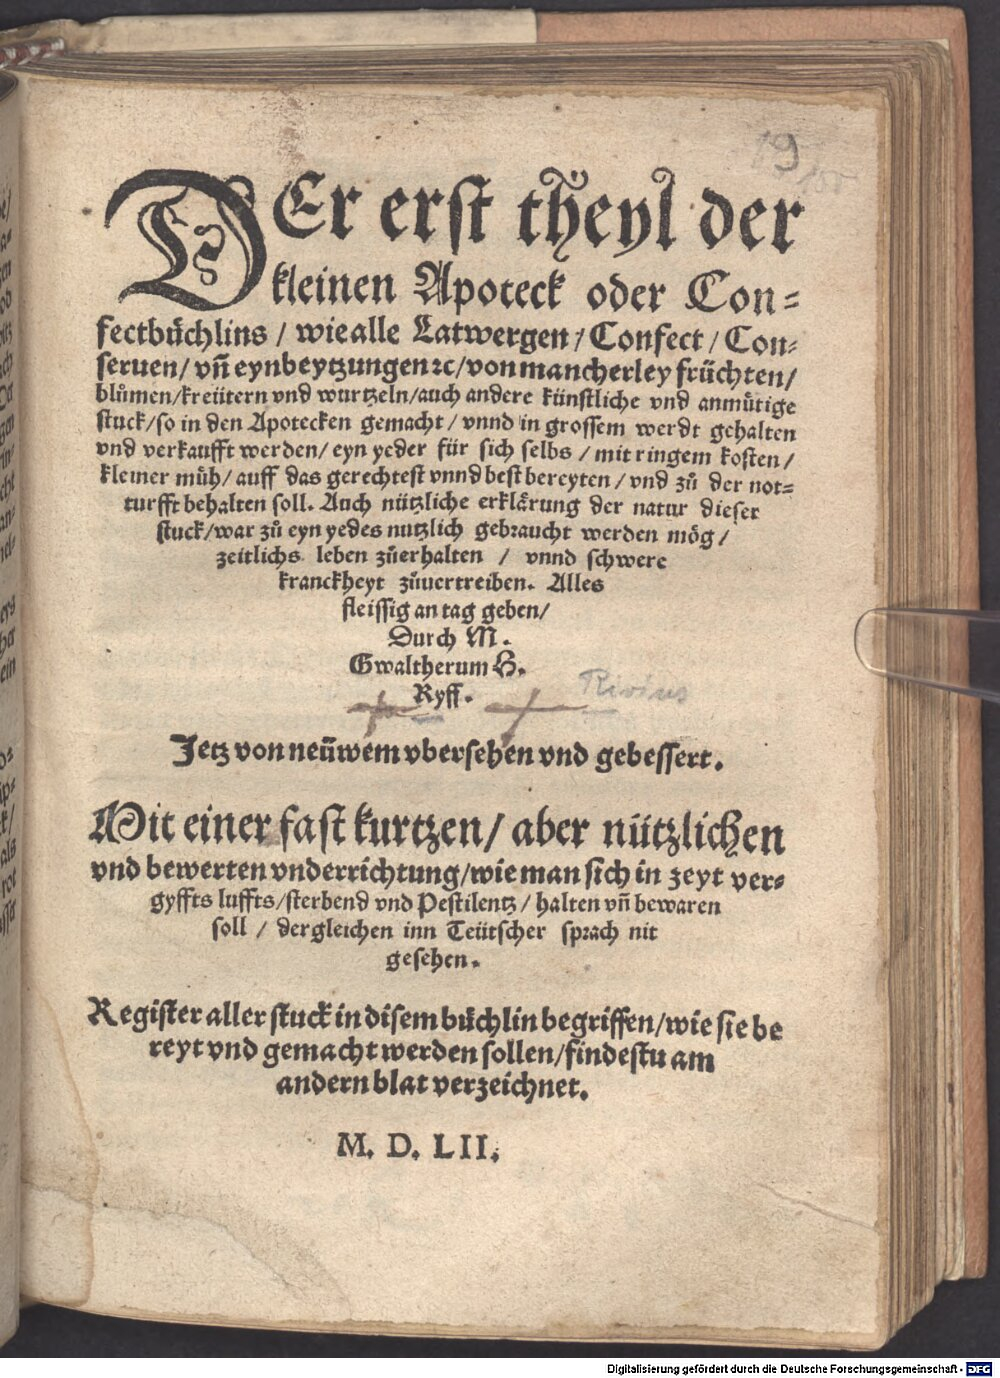 19
DEr erst theyl der
kleinen Apoteck oder Con=
fectbůchlins / wie alle Latwergen / Confect / Con=
seruen / vn̄ eynbeytzungen ꝛc / von mancherley früchten /
blůmen / kreütern vnd wurtzeln / auch andere künstliche vnd anmůtige
stuck / so in den Apotecken gemacht / vnnd in grossem werdt gehalten
vnd verkaufft werden / eyn yeder für sich selbs / mit ringem kosten /
kleiner müh / auff das gerechtest vnnd best bereyten / vnd zů der not=
turfft behalten soll. Auch nützliche erklärung der natur dieser
stuck / war zů eyn yedes nutzlich gebraucht werden mög /
zeitlichs leben zůerhalten / vnnd schwere
kranckheyt zůuertreiben. Alles
fleissig an tag geben /
Durch M.
Gwaltherum H.
Ryff. Rivius
Jetz von neüwem vbersehen vnd gebessert.
Mit einer fast kurtzen / aber nützlichen
vnd bewerten vnderrichtung / wie man sich in zeyt ver=
gyffts luffts / sterbend vnd Pestilentz / halten vn̄ bewaren
soll / dergleichen inn Teütscher sprach nit
gesehen.
Register aller stuck in disem bůchlin begriffen / wie sie be
reyt vnd gemacht werden sollen / findestu am
andern blat verzeichnet.
M. D. LII.
Digitalisierung gefördert durch die Deutsche Forschungsgemeinschaft - DFG